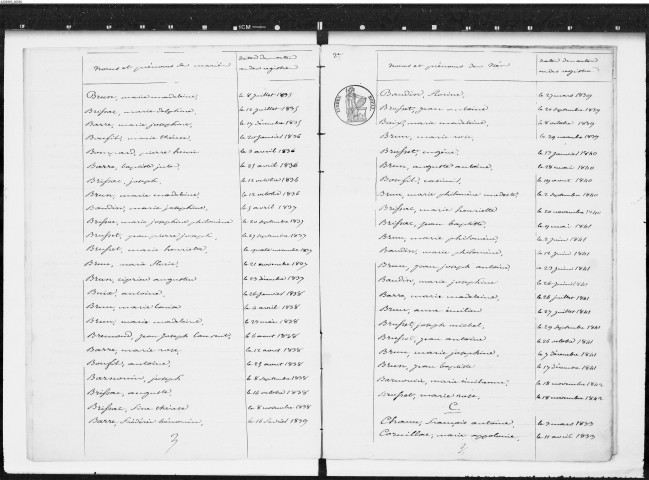 Noms et prénoms des mariés
dates des actes ou des registres
Brun, marie madeleine, le 8 juillet 1835
Brissac, marie delphine, le 12 juillet 1835
Barre, marie josephine, le 19 décembre 1835
Bonfils, marie thérèse, le 20 janvier 1836
pierre henri le 2 avril 1836
Barre, baptiste jule, le 21 avril 1836
Brissac, joseph, le 12 octobre 1836
Brun, marie madeleine, le 12 octobre 1836
Baudin, marie josephine, le 5 avril 1837
Brissac, marie josephine philomène le 20 septembre 1837
Brusset, jean pierre joseph, le 27 septembre 1837
Brusset, marie henriette le quatre novembre 1837
Brun, marie le 21 novembre 1837
Brun, cyprien augustin le 23 décembre 1837
Buix, antoine, le 26 janvier 1838
Brun, marie le 2 avril 1838
Brun, marie madeleine, le 23 mai 1838
Bremond, jean joseph laurent, le 6 aout 1838
Barre, marie rose, le 12 aout 1838
Bonfils, antoine, le 25 aout 1838
Barnouin, joseph le 8 septembre 1838
Brissac, auguste, le 16 octobre 1838
Brissac, thérèse le 8 novembre 1838
Barre, frédéric le 16 1839
3
2e
Noms et prénoms des Nés
dates des actes ou des registres
TIMBRE ROYAL
Baudin, le 27 mars 1839
Brusset, jean antoine le 20 septembre 1839
Buix, marie madeleine, le 8 octobre 1839
Brun, marie rose, le 29 novembre 1839
Brusset, eugène, le 17 janvier 1840
Brun, auguste antoine, le 28 mai 1840
Bonfils, casimir, le 19 aout 1840
Brun, marie philomène modeste, le 2 septembre 1840
Brissac, marie henriette le 20 novembre 1840
Brissac, jean baptiste, le 9 mai 1841
Brun, marie philomène, le 2 juin 1841
Baudin, marie philomène, le 12 juin 1841
Brun, jean joseph antoine le 23 juin 1841
Baudin, marie josephine le 26 juin 1841
Barre, marie madeleine, le 26 juillet 1841
Brun, anne émilie le 27 juillet 1841
Brusset, joseph michel, le 29 septembre 1841
Brusset, jean antoine le 26 octobre 1841
Brun, marie josephine, le 7 décembre 1841
Brun, jean baptiste le 17 décembre 1841
Barnouin, marie le 18 novembre 1842
Brusset, marie rose, le 18 novembre 1842
C.
Chauvin, françois antoine, le 3 mars 1833
Cornillac, marie appolonie, le 11 avril 1833